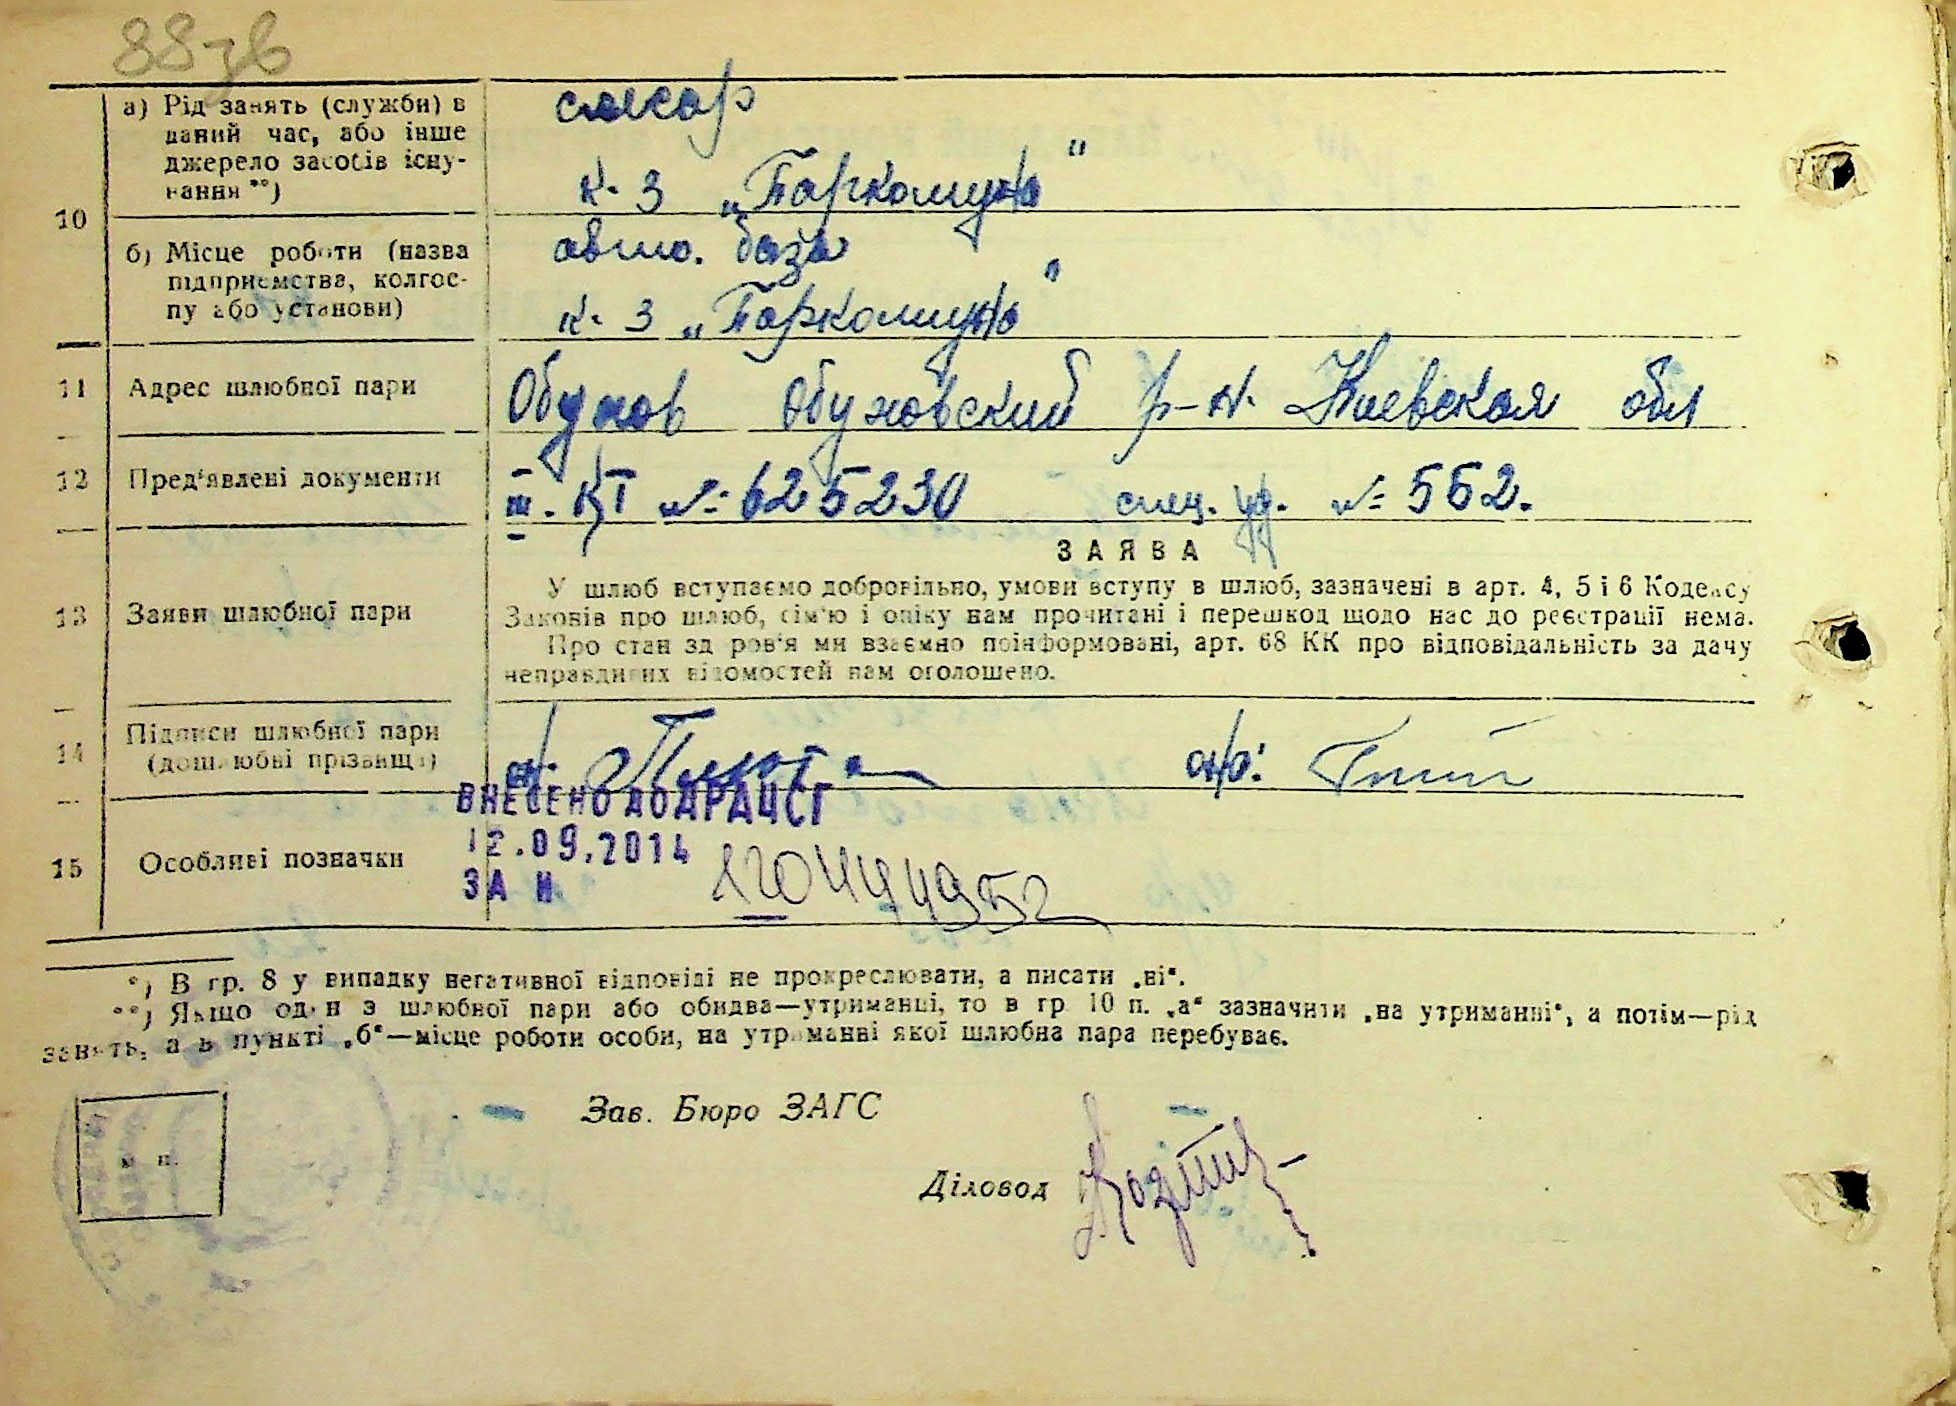 88зв
а) Рід занять (служби) в
даний час, або інше
джерело засобів існу-
вання**)
слесар
к-з „Паркомуна"
10
б) Місце роботи (назва
підприємства, колгос-
пу або установи)
авто. база
к-з „Паркомуна"
11 Адрес шлюбної пари Обухов Обуховский р-н. Киевская обл
12 Пред'явлені документи № 625230 спец. уд. № 552.
13 Заяви шлюбної пари
ЗАЯВА
У шлюб вступаємо добровільно, умови вступу в шлюб, зазначені в арт. 4, 5 і 6 Кодексу
Законів про шлюб, сім'ю і опіку нам прочитані і перешкод щодо нас до реєстрації нема.
Про стан здоров'я ми взаємно поінформовані, арт. 68 КК про відповідальність за дачу
неправдивих відомостей нам оголошено.
14 Підписи шлюбної пари
(дошлюбні прізвища)
15 Особливі позначки
ВНЕСЕНО ДО ДРАЦСГ
12.09.2014
ЗА N
*) В гр. 8 у випадку негативної відповіді не прокреслювати, а писати „ні".
**) Якщо один з шлюбної пари або обидва—утриманці, то в гр 10 п. „а" зазначити „на утриманні", а потім—рід
занять, а в пункті „б"—місце роботи особи, на утриманні якої шлюбна пара перебуває.
м п.
Зав. Бюро ЗАГС
Діловод